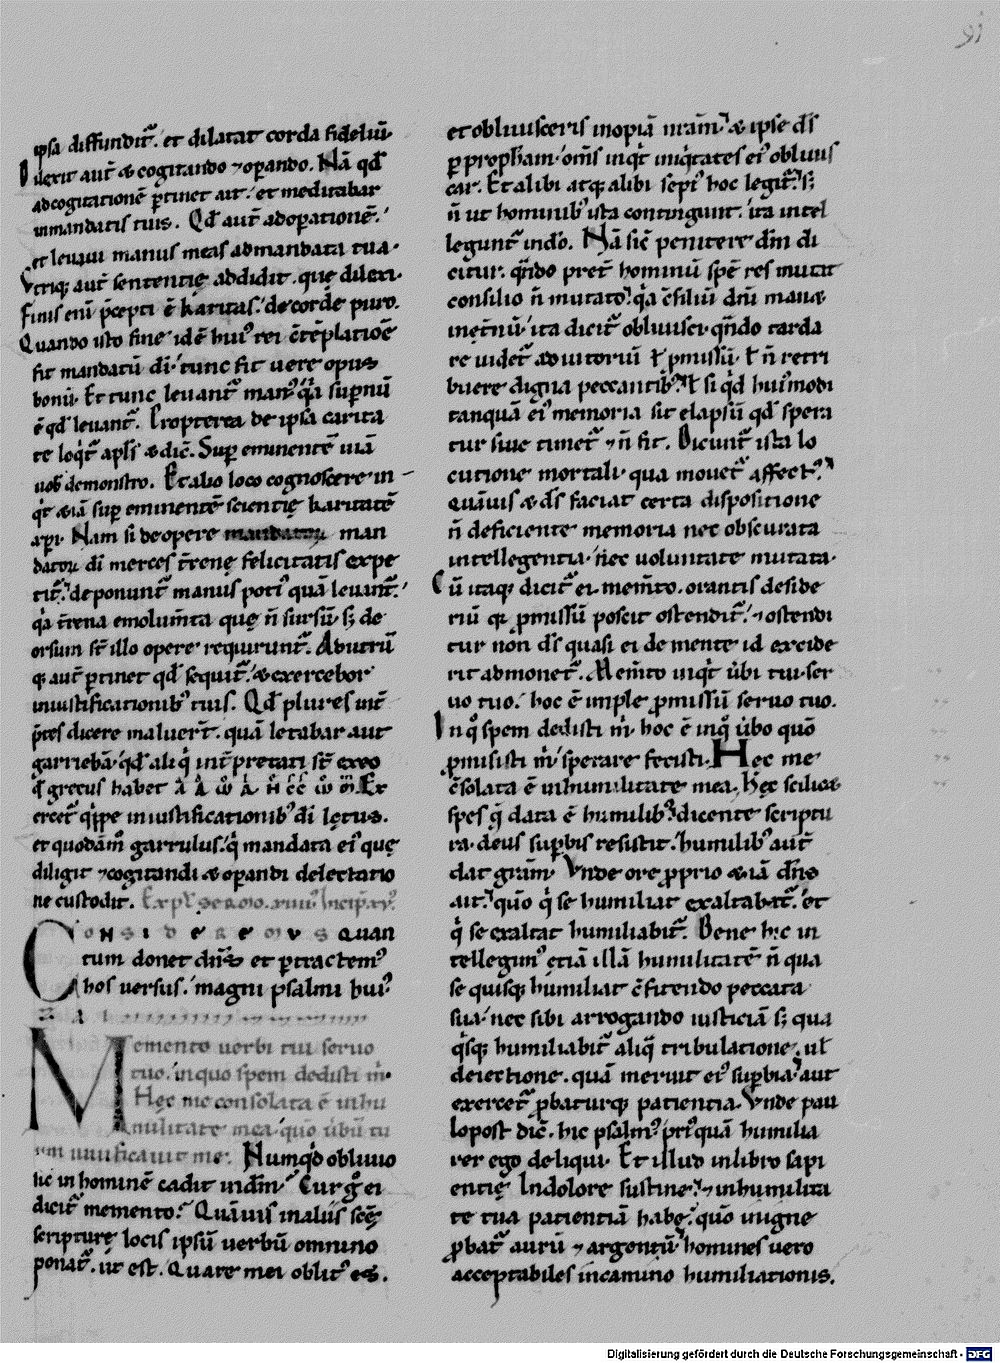 91
ipsa diffundit᷑. et dilatat corda fideliū.
Dilexit aut̄ & cogitando ⁊ operando. Nā qd̄
ad cogitationē ꝑtinet ait. et meditabar
in mandatis tuis. Qd̄ aut̄ ad oꝑationē.
et leuaui manus meas ad mandata tua.
Vtriq; aut̄ sententię addidit. quę dilexi.
Finis enī p̄cepti ē karitas. de corde puro.
Quando isto fine id ē hui᾽ rei c̄tēplatiōe
fit mandatū dī. tunc fit uere opus
bonū. Et tunc leuant᷑ man᾽ qa supnū
ē qd̄ leuant᷑. Propterea de ipsa carita
te loqt᷑ apl̄s & dic̄. Suꝑ eminentē uiā
uob̄ demonstro. Et alio loco cognoscere in
qt & iā suꝑ eminentē scientię karitatē
xp̄i. Nam si de opere mandatoꝝ man
datoꝝ dī merces t̄renę felicitatis expe
tit᷑. deponunt᷑ manus poti᾽ quā leuant᷑.
qa t̄rena emolum̄ta quę n̄ sursū. s; de
orsum st̄ illo opere requirunt᷑. Ad utrū
q; aut̄ ꝑtinet qd̄ sequit᷑. & exercebor
in iustificationib᾽ tuis. Qd̄ plures int̄
p̄tes dicere maluer̄t. quā letabar aut
garriebā. qd̄ aliq int̄pretati st̄ ex eo
qd̄ grecus habet
Ex
ercet᷑ qippe in iustificationib᾽ dī lętus.
et quodāmo garrulus. q mandata ei᾽ quę
diligit ⁊ cogitandi & oꝑandi delectatio
ne custodit. Expl̄ sermo .xiiii. Incip̄ .xv.
CONSIDEREMUS quan
tum donet dn̄s et ꝑtractem᾽
hos uersus. magni psalmi hui᾽
Memento uerbi tui seruo
tuo. in quo spem dedisti m̄.
Hęc me consolata ē in hu
militate mea. quo ūbū tu
um uiuificauit me. Numqd obliuio
sic in hominē cadit in dm̄. Cur g̊ ei
dicit᷑ memento. Quāuis in aliis scę̄
scripturę locis ipsū uerbū omnino
ponat᷑. ut est. Quare mei oblit᾽ es.
et obliuisceris inopiā nr̄am. & ipse ds̄
ꝑ prophām. om̄s inqt iniqtates ei᾽ obliuis
car. Et alibi atq; alibi sepi᾽ hoc legit᷑. s;
n̄ ut hominib᾽ ista contingunt. ita intel
legunt᷑ in dō. Nā sic̄ penitere dm̄ di
citur. qn̄do p̄ret̄ hominū spē res mutat
consilio n̄ mutato. qa c̄siliū dn̄i manet
in et̄nū. ita dicit᷑ obliuisci. qn̄do tarda
re uidet᷑ adiutoriū ł ꝓmissū. ł n̄ retri
buere digna peccantib᾽. ł si qd̄ hui᾽modi
tanquā ei᾽ memoria sit elapsū qd̄ spera
tur siue timet᷑ ⁊ n̄ fit. Dicunt᷑ ista lo
cutione mortali. qua mouet᷑ affect᾽.
quāuis & ds̄ faciat certa dispositione
n̄ deficiente memoria nec obscurata
intellegentia. nec uoluntate mutata.
Cū itaq; dicit᷑ ei mem̄to. orantis deside
riū q; ꝓmissū poscit ostendit᷑. ⁊ ostendi
tur non ds̄ quasi ei de mente id excide
rit admonet᷑. Mem̄to inqt ūbi tui ser
uo tuo. hoc ē imple ꝓmissū seruo tuo.
In qo spem dedisti m̄. hoc ē in qo ūbo quō
ꝓmisisti m̄ sperare fecisti. Hęc me
c̄solata ē in humilitate mea. Hęc scilicet
spes q̄ data ē humilib᾽. dicente scriptu
ra. deus suꝑbis resistit. humilib᾽ aut̄
dat grām. Vnde ore ꝓprio & iā dn̄s
ait. quō q se humiliat exaltabit᷑. et
q se exaltat humiliabit᷑. Bene hic in
tellegim᾽ etiā illā humilitatē n̄ qua
se quisq; humiliat c̄fitendo peccata
sua. nec sibi arrogando iusticiā s; qua
qsq; humiliabit᷑ aliq̄ tribulatione. ul̄
deiectione. quā meruit ei᾽ suꝑbia. aut
exercet᷑ ꝓbaturq; patientia. Vnde pau
lo post dic̄. hic psalm᾽. pri᾽quā humilia
rer ego deliqui. Et illud in libro sapi
entię. In dolore sustine. ⁊ in humilita
te tua patientiā habe. quō in igne
ꝓbat᷑ aurū ⁊ argentū. homines uero
acceptabiles in camino humiliationis.
Digitalisierung gefördert durch die Deutsche Forschungsgemeinschaft - DFG